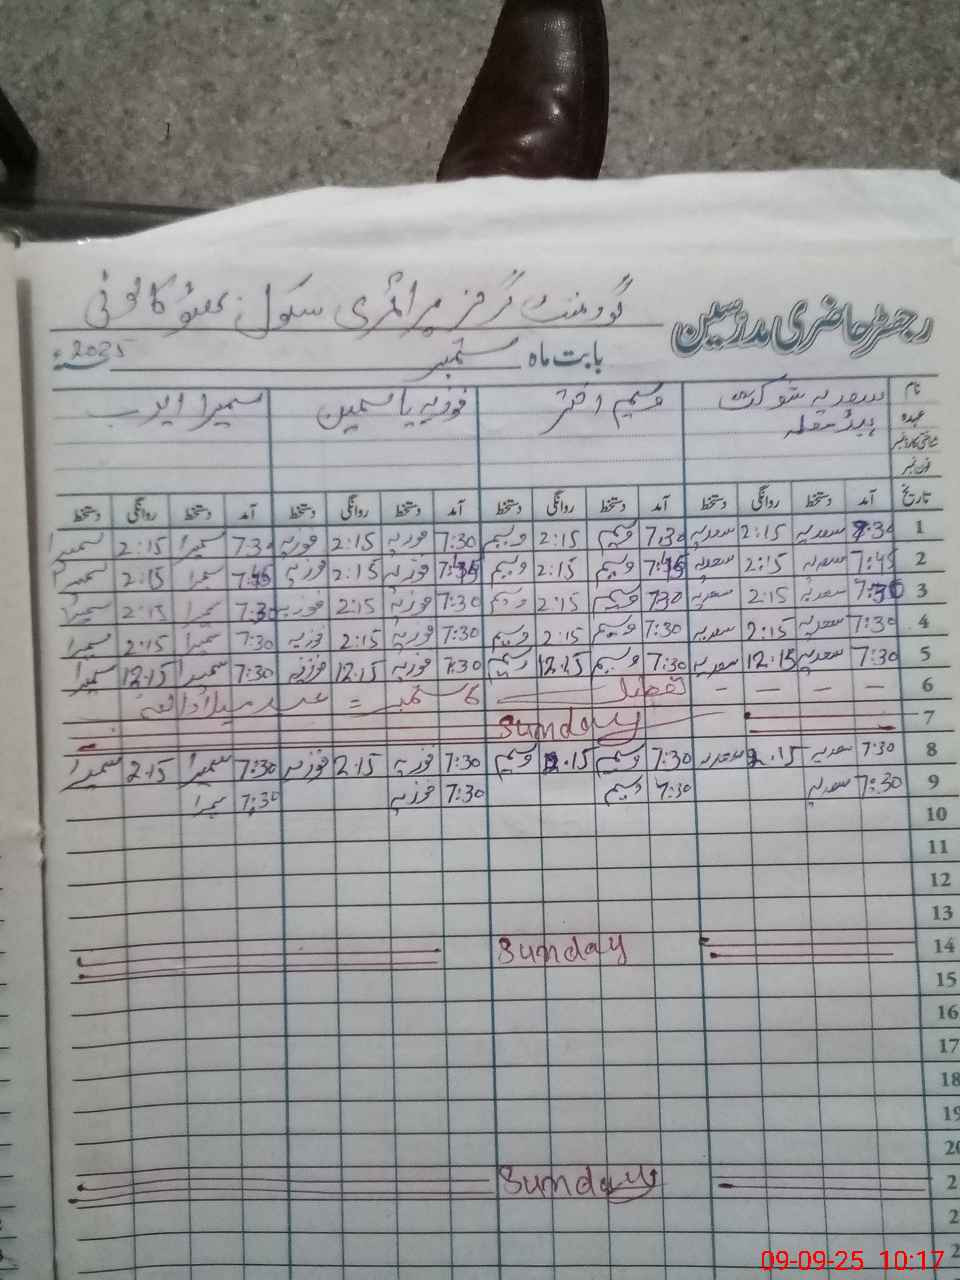 گورنمنٹ گرلز پرائمری سکول بھٹو کالونی
رجسٹر حاضری مدرسین
بابت ماہ ستمبر 2025ء
نام سعدیہ شوکت وسیم اختر فوزیہ یاسمین سمیرا ایوب
عہدہ ہیڈ معلمہ
شناختی کارڈ نمبر
فون نمبر
تاریخ آمد دستخط روانگی دستخط آمد دستخط روانگی دستخط آمد دستخط روانگی دستخط آمد دستخط روانگی دستخط
1 7:30 سعدیہ 2:15 سعدیہ 7:30 وسیم 2:15 وسیم 7:30 فوزیہ 2:15 فوزیہ 7:30 سمیرا 2:15 سمیرا
2 7:45 سعدیہ 2:15 سعدیہ 7:45 وسیم 2:15 وسیم 7:45 فوزیہ 2:15 فوزیہ 7:45 سمیرا 2:15 سمیرا
3 7:30 سعدیہ 2:15 سعدیہ 7:30 وسیم 2:15 وسیم 7:30 فوزیہ 2:15 فوزیہ 7:30 سمیرا 2:15 سمیرا
4 7:30 سعدیہ 2:15 سعدیہ 7:30 وسیم 2:15 وسیم 7:30 فوزیہ 2:15 فوزیہ 7:30 سمیرا 2:15 سمیرا
5 7:30 سعدیہ 12:15 سعدیہ 7:30 وسیم 12:15 وسیم 7:30 فوزیہ 12:15 فوزیہ 7:30 سمیرا 12:15 سمیرا
6 – – – – تعطیل 6 ستمبر = عید میلاد النبی
7 Sunday
8 7:30 سعدیہ 2:15 سعدیہ 7:30 وسیم 2:15 وسیم 7:30 فوزیہ 2:15 فوزیہ 7:30 سمیرا 2:15 سمیرا
9 7:30 سعدیہ 7:30 وسیم 7:30 فوزیہ 7:30 سمیرا
10
11
12
13
14 Sunday
15
16
17
18
19
20
2 Sunday
2
2
09-09-25 10:17